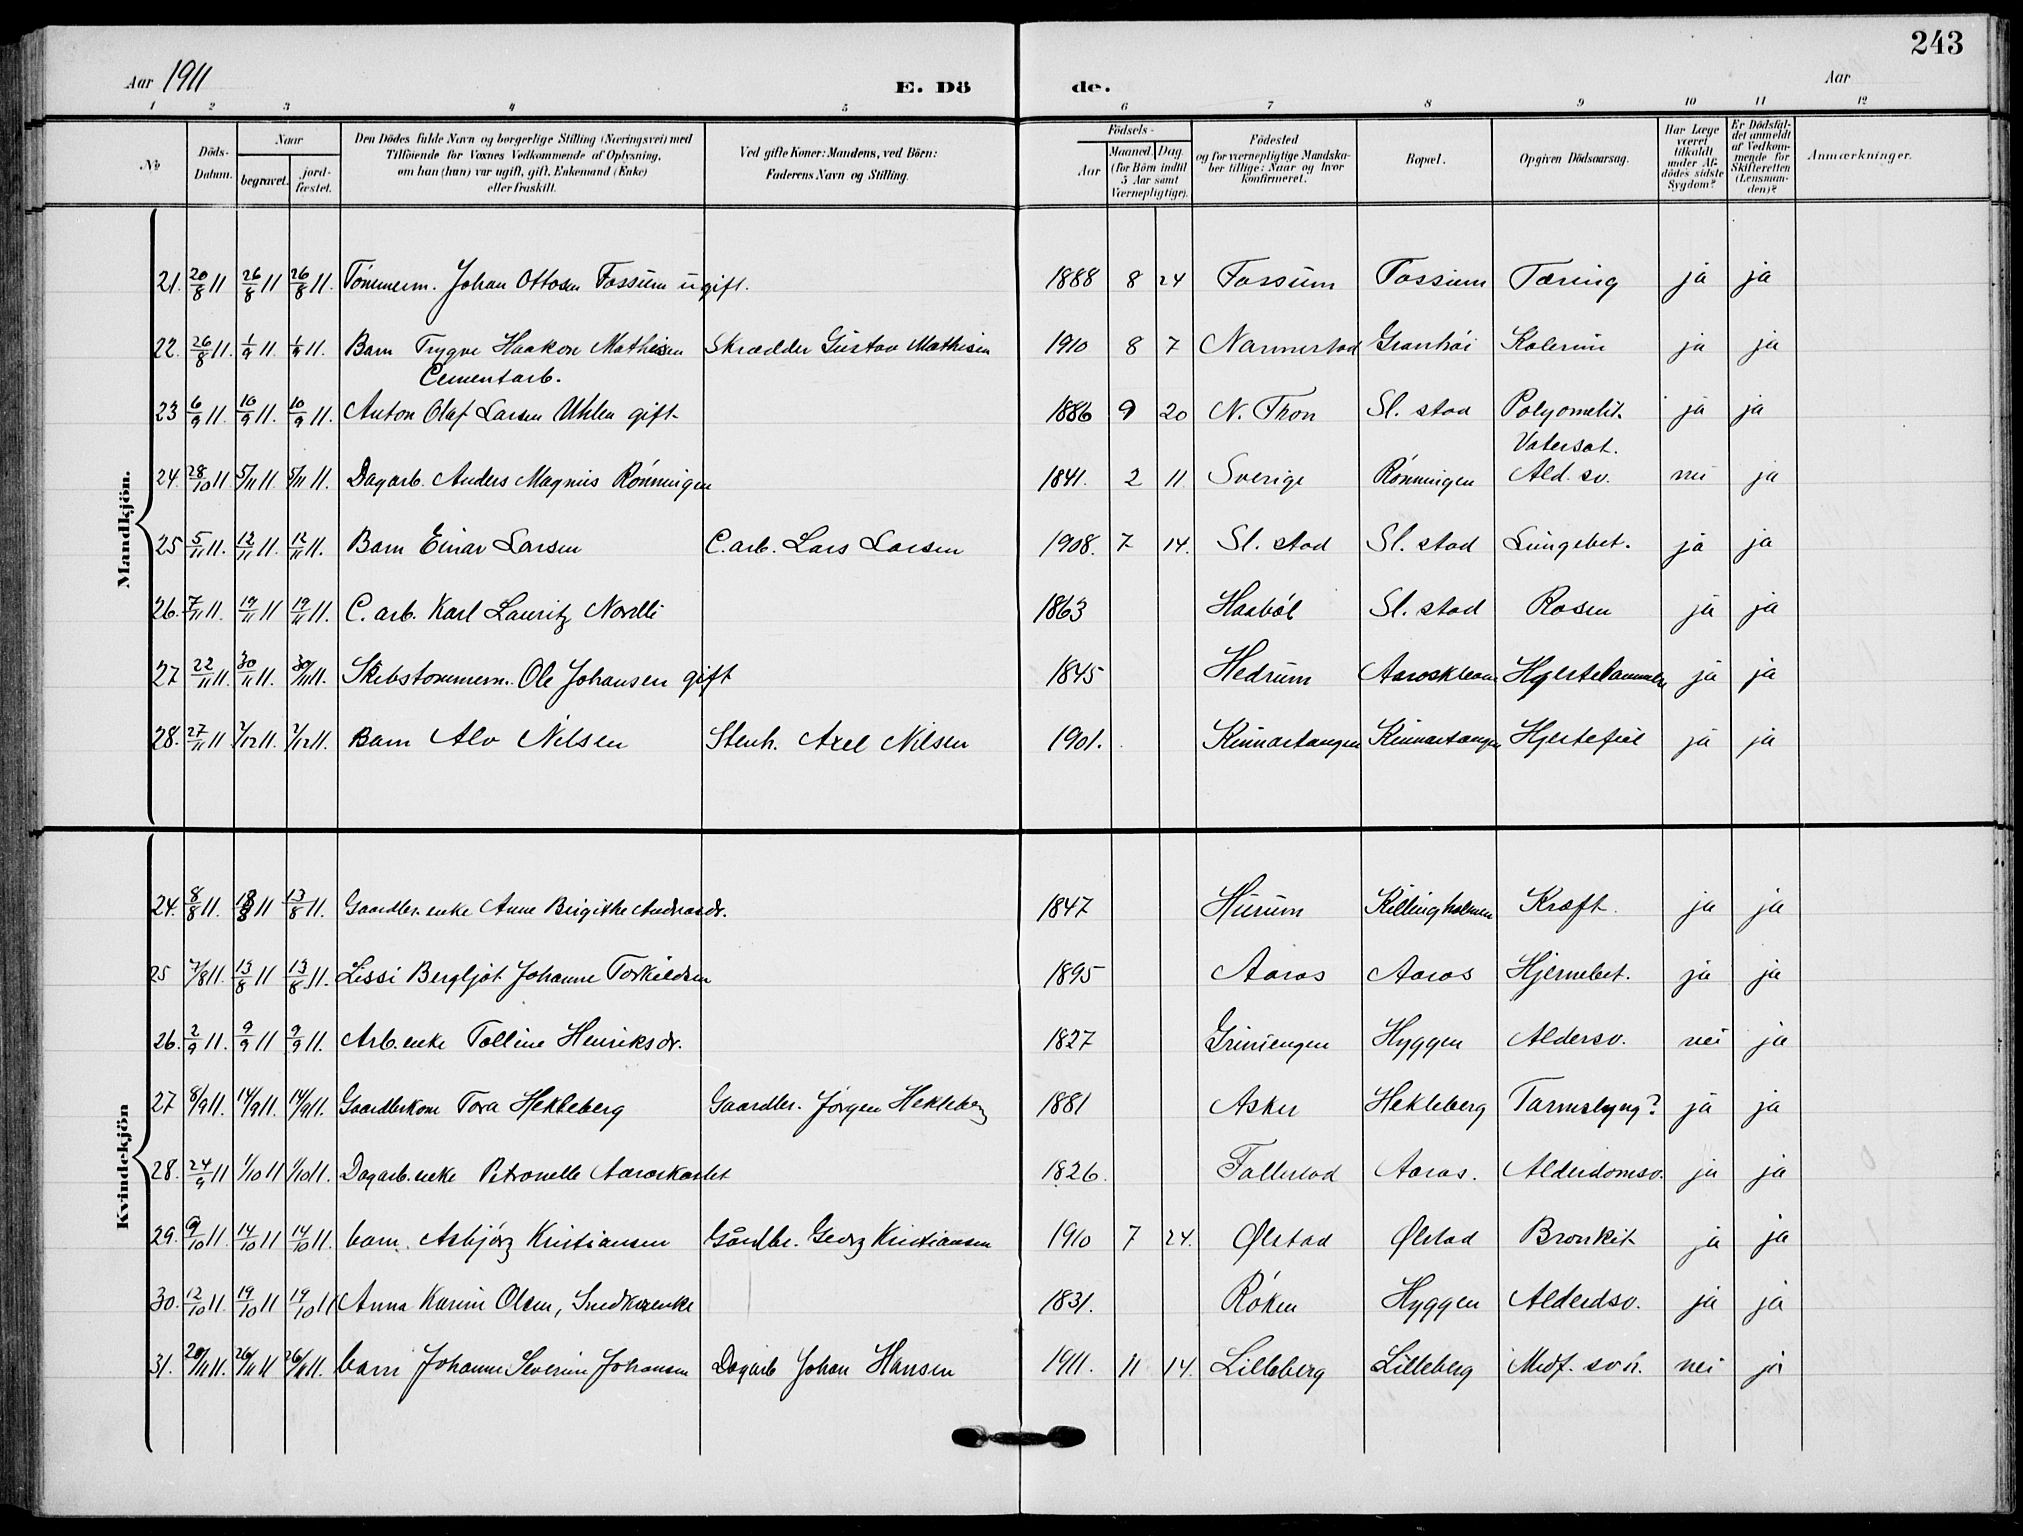 243
Aar 1911 E. Dö de. Aar
1 2 3 4 5 6 7 8 9 10 11 12
№ Döds-Datum. Naar begravet. jord-fæstet. Den Dödes fulde Navn og borgerlige Stilling (Næringsvei) med Tilföiende for Voxnes Vedkommende af Oplysning, om han (hun) var ugift, gift, Enkemand (Enke) eller fraskilt. Ved gifte Koner: Mandens, ved Börn: Faderens Navn og Stilling. Födsels- Aar Maaned. Dag. (for Börn indtil 5 Aar samt Værnepligtige). Födested og for værnepligtige Mandska-ber tillige: Naar og hvor konfirmeret. Bopæl. Opgiven Dödsaarsag. Har Læge været tilkaldt under Af-dödes sidste Sygdom? Er Dödsfal-det anmeldt af Vedkom-mende for Skifteretten (Lensman-den)? Anmærkninger.
Mandkjön.
21. 20/8 11 26/8 11 26/8 11. Tömmerm. Johan Ottosen Fossum ugift. 1888 8 24 Fossum Fossum Tæring ja ja
22. 26/8 11. 1/9 11. 1/9 11. Barn Trygve Haakon Mathisen Skrædder Gustav Mathisen 1910 8 7 Narnerstad Granhöi Kolerin ja ja
Cementarb.
23 6/9 11. 10/9 11. 10/9 11. Anton Olaf Larsen Uhlen gift 1886 9 20 N. Thon Sl. stad Polyomelit. ja ja
Vatersot.
24. 28/10 11. 5/11 11 5/11 11. Dagarb. Anders Magnus Rönningen 1841. 2 11 Sverige Rönningen Ald. sv. nei ja
25 5/11 11. 12/11 11. 12/11 11. Barn Einar Larsen C. arb. Lars Larsen 1908. 7 14. Sl. stad Sl. stad Lungebet. ja ja
26. 7/11 11. 19/11 11 19/11 11. C. arb. Karl Lauritz Novelli 1863 Haaböl Sl. stad Rosen ja ja
27 22/11 11. 30/11 11. 30/11 11. Skibstömmerm. Ole Johansen gift 1845 Hedrum Hjertelammelse ja ja
28. 27/11 11 11. 11. Barn Alv Nilsen Stenh. Axel Nilsen 1901. Kinnartangen Kinnartangen Hjertefeil ja ja
Kvindekjön
24. 8/8 11. 13/8 11 13/8 11. Gaardbr. enke Anne Birgithe Andreasdr. 1847 Hurum Killingholmen Kræft. ja ja
25 7/8 11. 13/8 11 13/8 11. Lissi Bergljot Johanne Torkildsen 1895 Aaros Aaros Hjernebet. ja ja
26. 2/9 11. 9/9 11 9/9 11. Arb. enke Tolline Henriksdr. 1827 Grinsengen Hyggen Aldersv. nei ja
27 8/9 11. 14/9 11. 14/9 11. Gaardbrkone Tora Hekleberg Gaardbr. Jörgen Hekleberg 1881 Asker Hekleberg Tarmslyng? ja ja
28. 24/9 11 1/10 11 1/10 11. Dagarb. enke Petronelle Aaroskastet 1826. Follestad Aaros. Alderdomsv. ja ja
29. 9/10 11. 14/10 11 14/10 11. barn. Asbjörg Kristiansen Gårdbr. Georg Kristiansen 1910 7 24. Ølstad Ølstad Bronkit ja ja
30. 12/10 11. 19/10 11 19/10 11 Anna Karine Olsen, Snedkerenke 1831. Röken Hyggen Alderdsv. ja ja
31. 20/11 11. 26/11 11 26/11 11. barn Johanne Severine Johansen Dagarb Johan Hansen 1911. 11 14. Lilleberg Lilleberg Medf. sv. nei ja